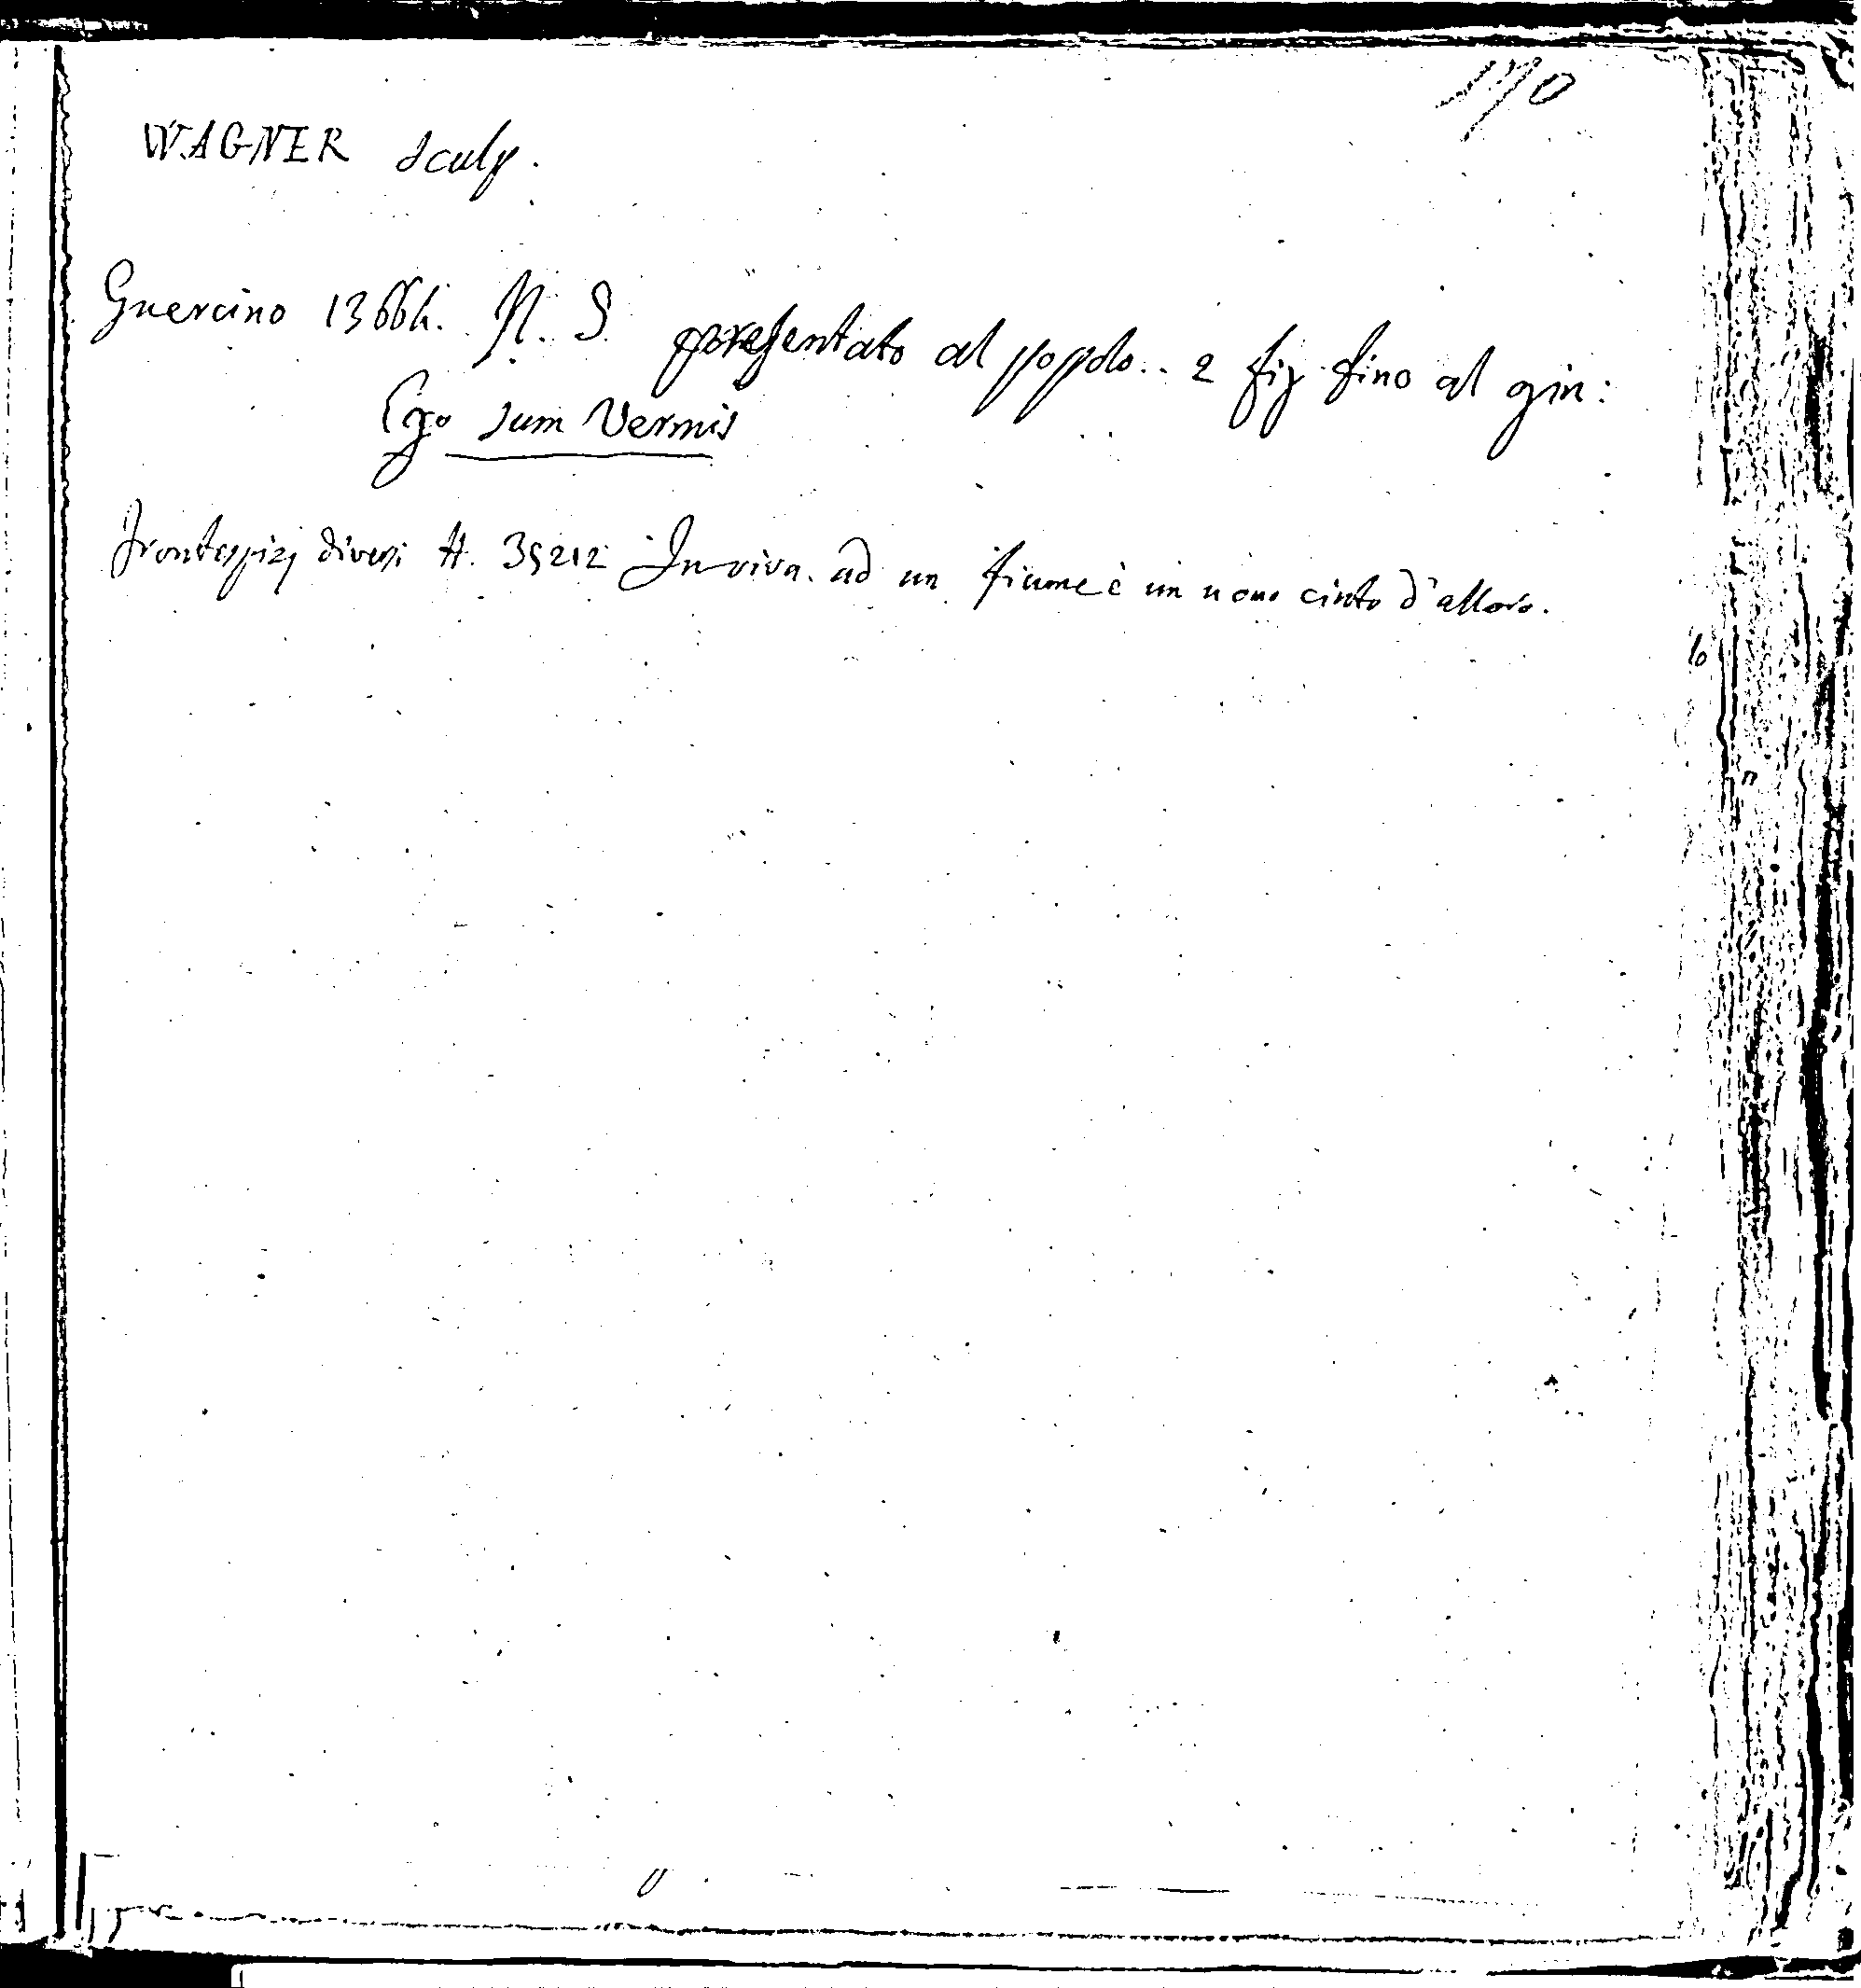 170
WAGNER sculp.
Guercino 1366h. N. S. presentato al popolo.. 2 fig fino al gin:
Ego sum Vermis
Frontespizj diversi H. 35212 In riva ad un fiume è un uomo cinto d'alloro.